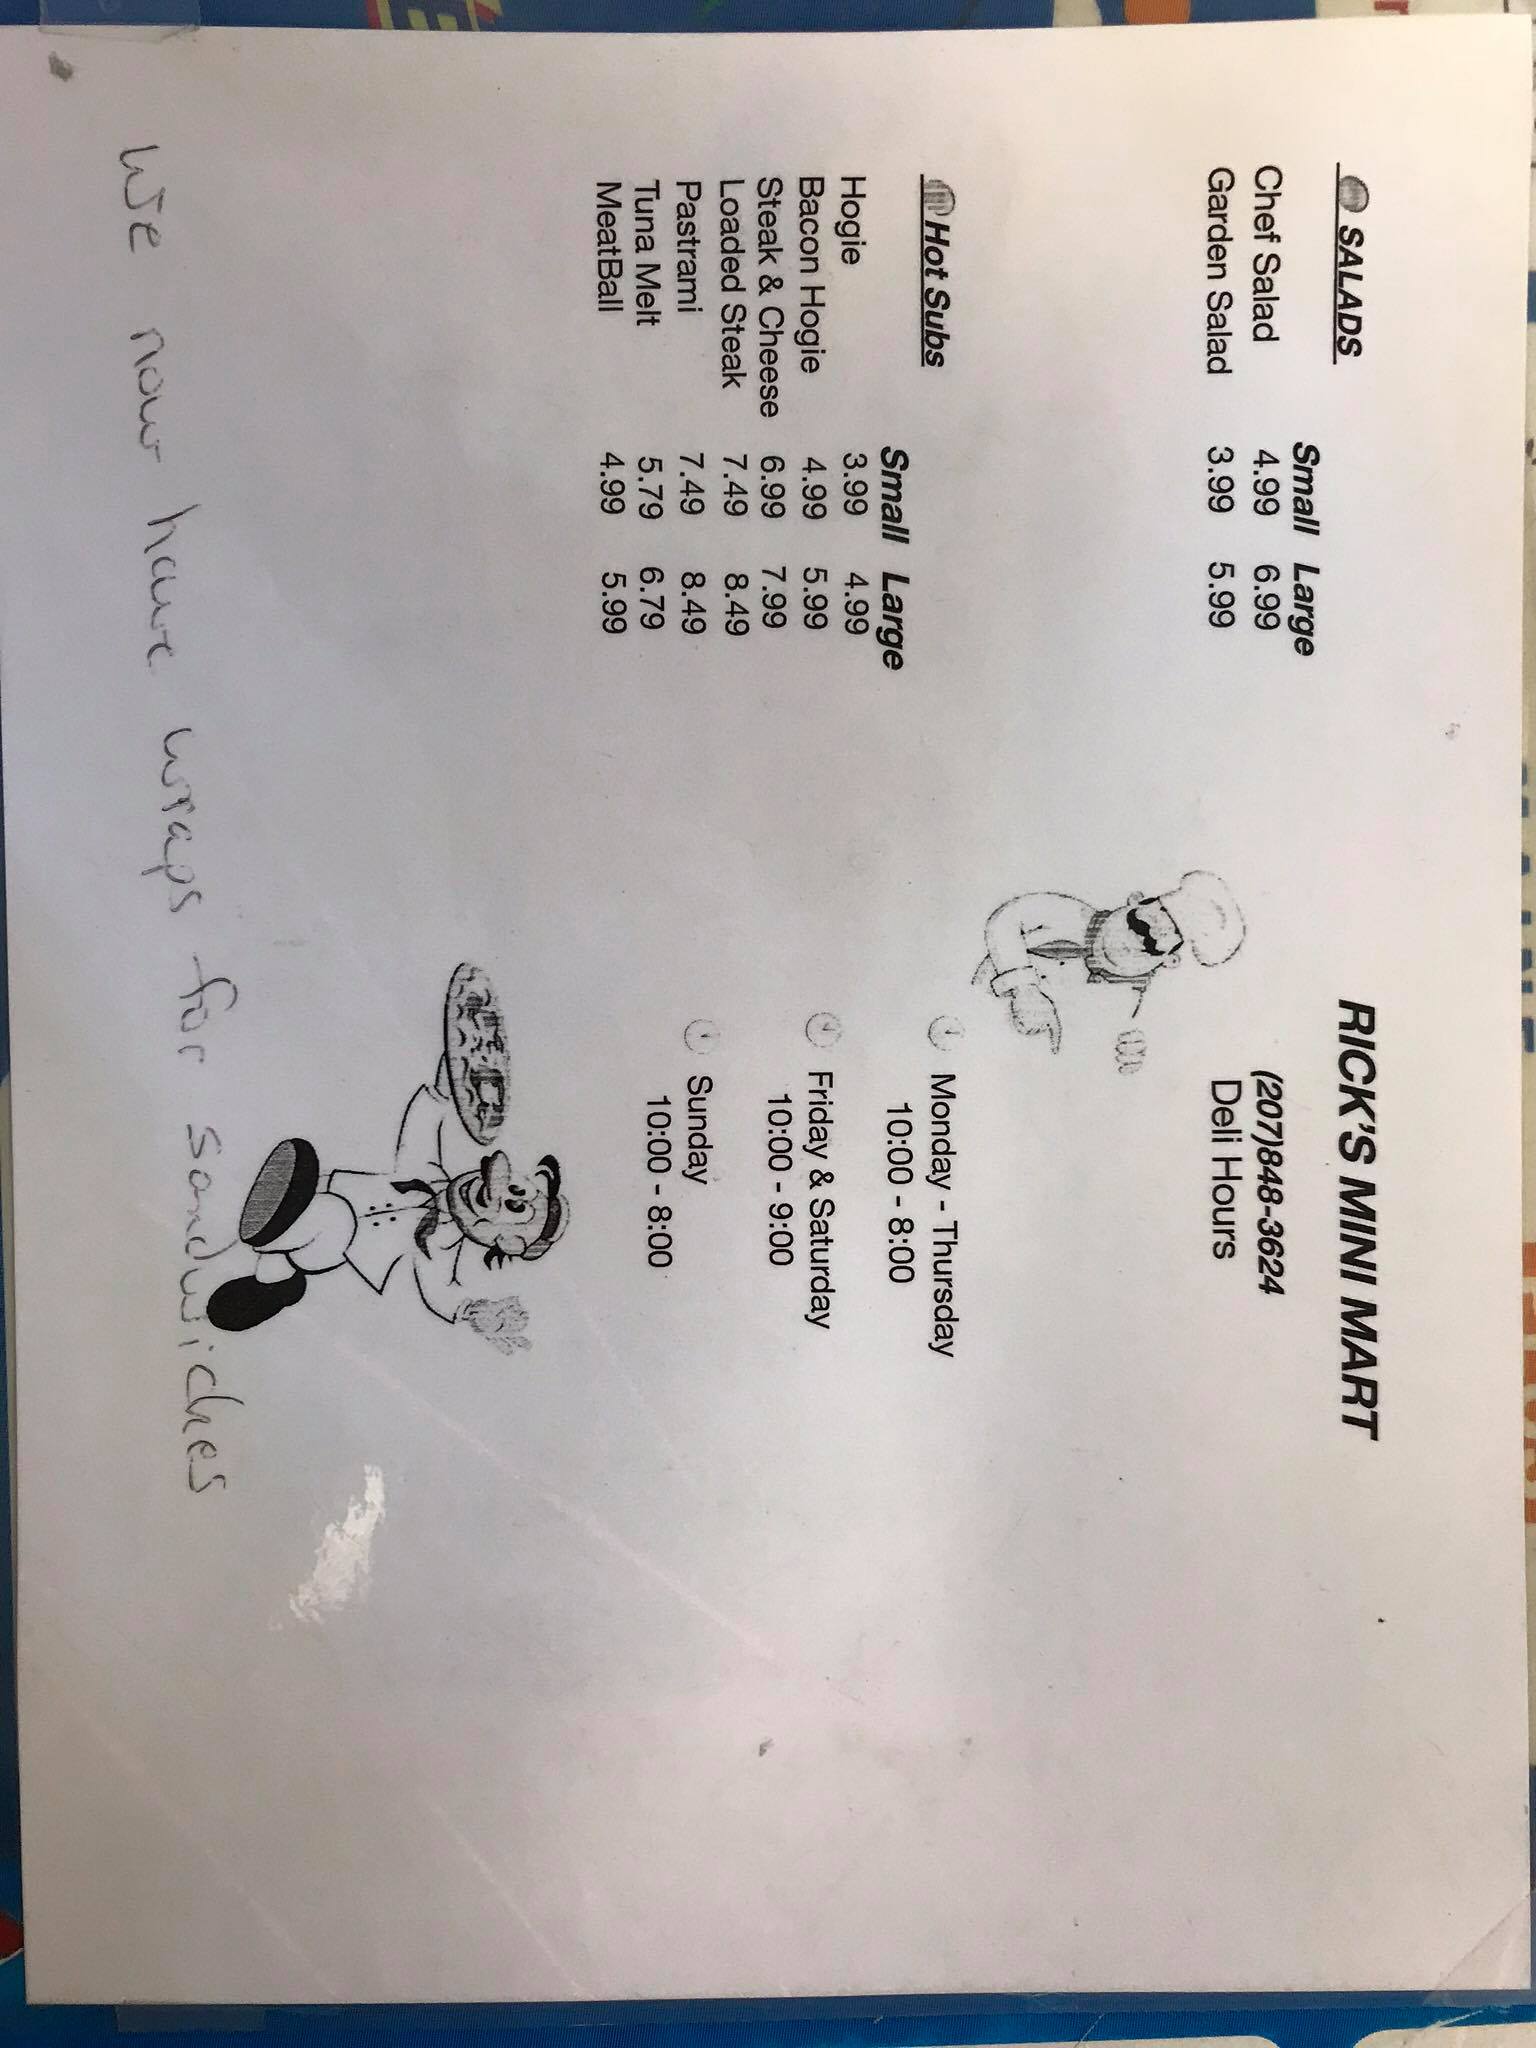 SALADS
Small Large
Chef Salad 4.99 6.99
Garden Salad 3.99 5.99
Hot Subs
Small Large
Hogie 3.99 4.99
Bacon Hogie 4.99 5.99
Steak & Cheese 6.99 7.99
Loaded Steak 7.49 8.49
Pastrami 7.49 8.49
Tuna Melt 5.79 6.79
MeatBall 4.99 5.99
RICK'S MINI MART
(207)848-3624
Deli Hours
Monday - Thursday
10:00 - 8:00
Friday & Saturday
10:00 - 9:00
Sunday
10:00 - 8:00
We now have wraps for sandwiches